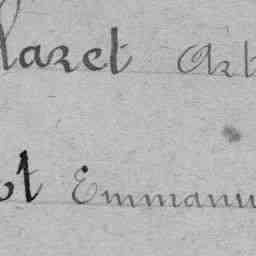 laret Art
t Emmanu